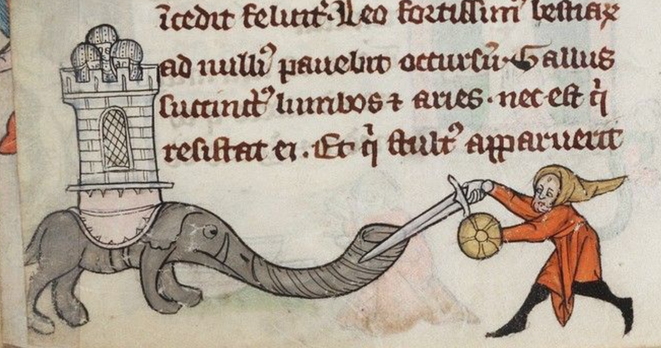 īcedit felicit᾿. Leo fortissimꝰ bestiaꝝ
ad nulliꝰ pauebit occursū. Gallus
succinctꝰ lumbos ⁊ aries. nec est qͥ
resistat ei. Et qͥ stultꝰ apparuerit